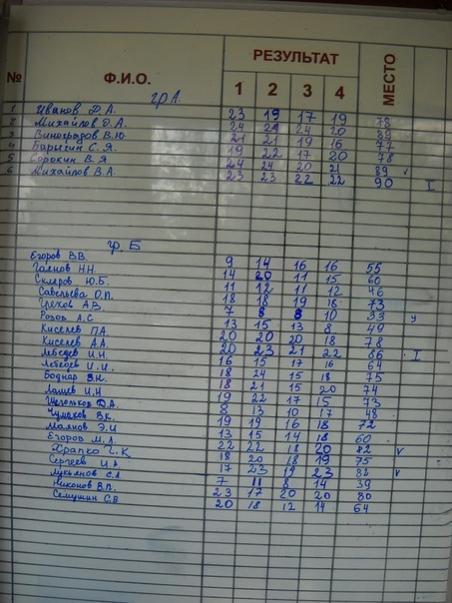 РЕЗУЛЬТАТ
№ Ф.И.О. 1 2 3 4 МЕСТО
гр А.
1 Иванов Д.А. 23 19 17 19 78
2 Михайлов О.А. 24 21 24 20 89
3 Виноградов В.Ю. 21 21 19 16 77
4 Барыгин С.Я. 19 22 17 20 78
5 Сорокин В.Я 24 24 20 21 89 v
6 Михайлов В.А. 23 23 22 22 90 I
гр. Б
Егоров В.В. 9 14 16 16 55
Н.Н. 14 20 11 15 60
Скляров Ю.Б. 11 12 11 12 46
Савельева О.П. 18 18 19 18 73
Грехов А.В. 7 8 8 10 33
А.С 13 15 13 8 49
Киселев П.А. 20 20 20 18 78
Киселев А.А. 20 23 21 22 86 I
Лебедев И.Н. 16 15 17 16 64
Лебедев И.И. 18 24 15 18 75
Боднар В.Н. 18 21 15 20 74
И.Н 19 22 17 15 73
Д.А. 8 13 10 17 48
Чумаков В.К. 19 19 16 18 72
Маянов Э.И 13 15 14 18 60
Егоров М.А. 22 22 18 20 82 v
Храпко Г.К 18 20 18 19 75
Сергеев И.А 17 23 19 23 82 v
Лукьянов С.А 7 11 8 14 39
Никонов В.П. 23 17 20 20 80
Семушин С.В 20 18 12 14 64